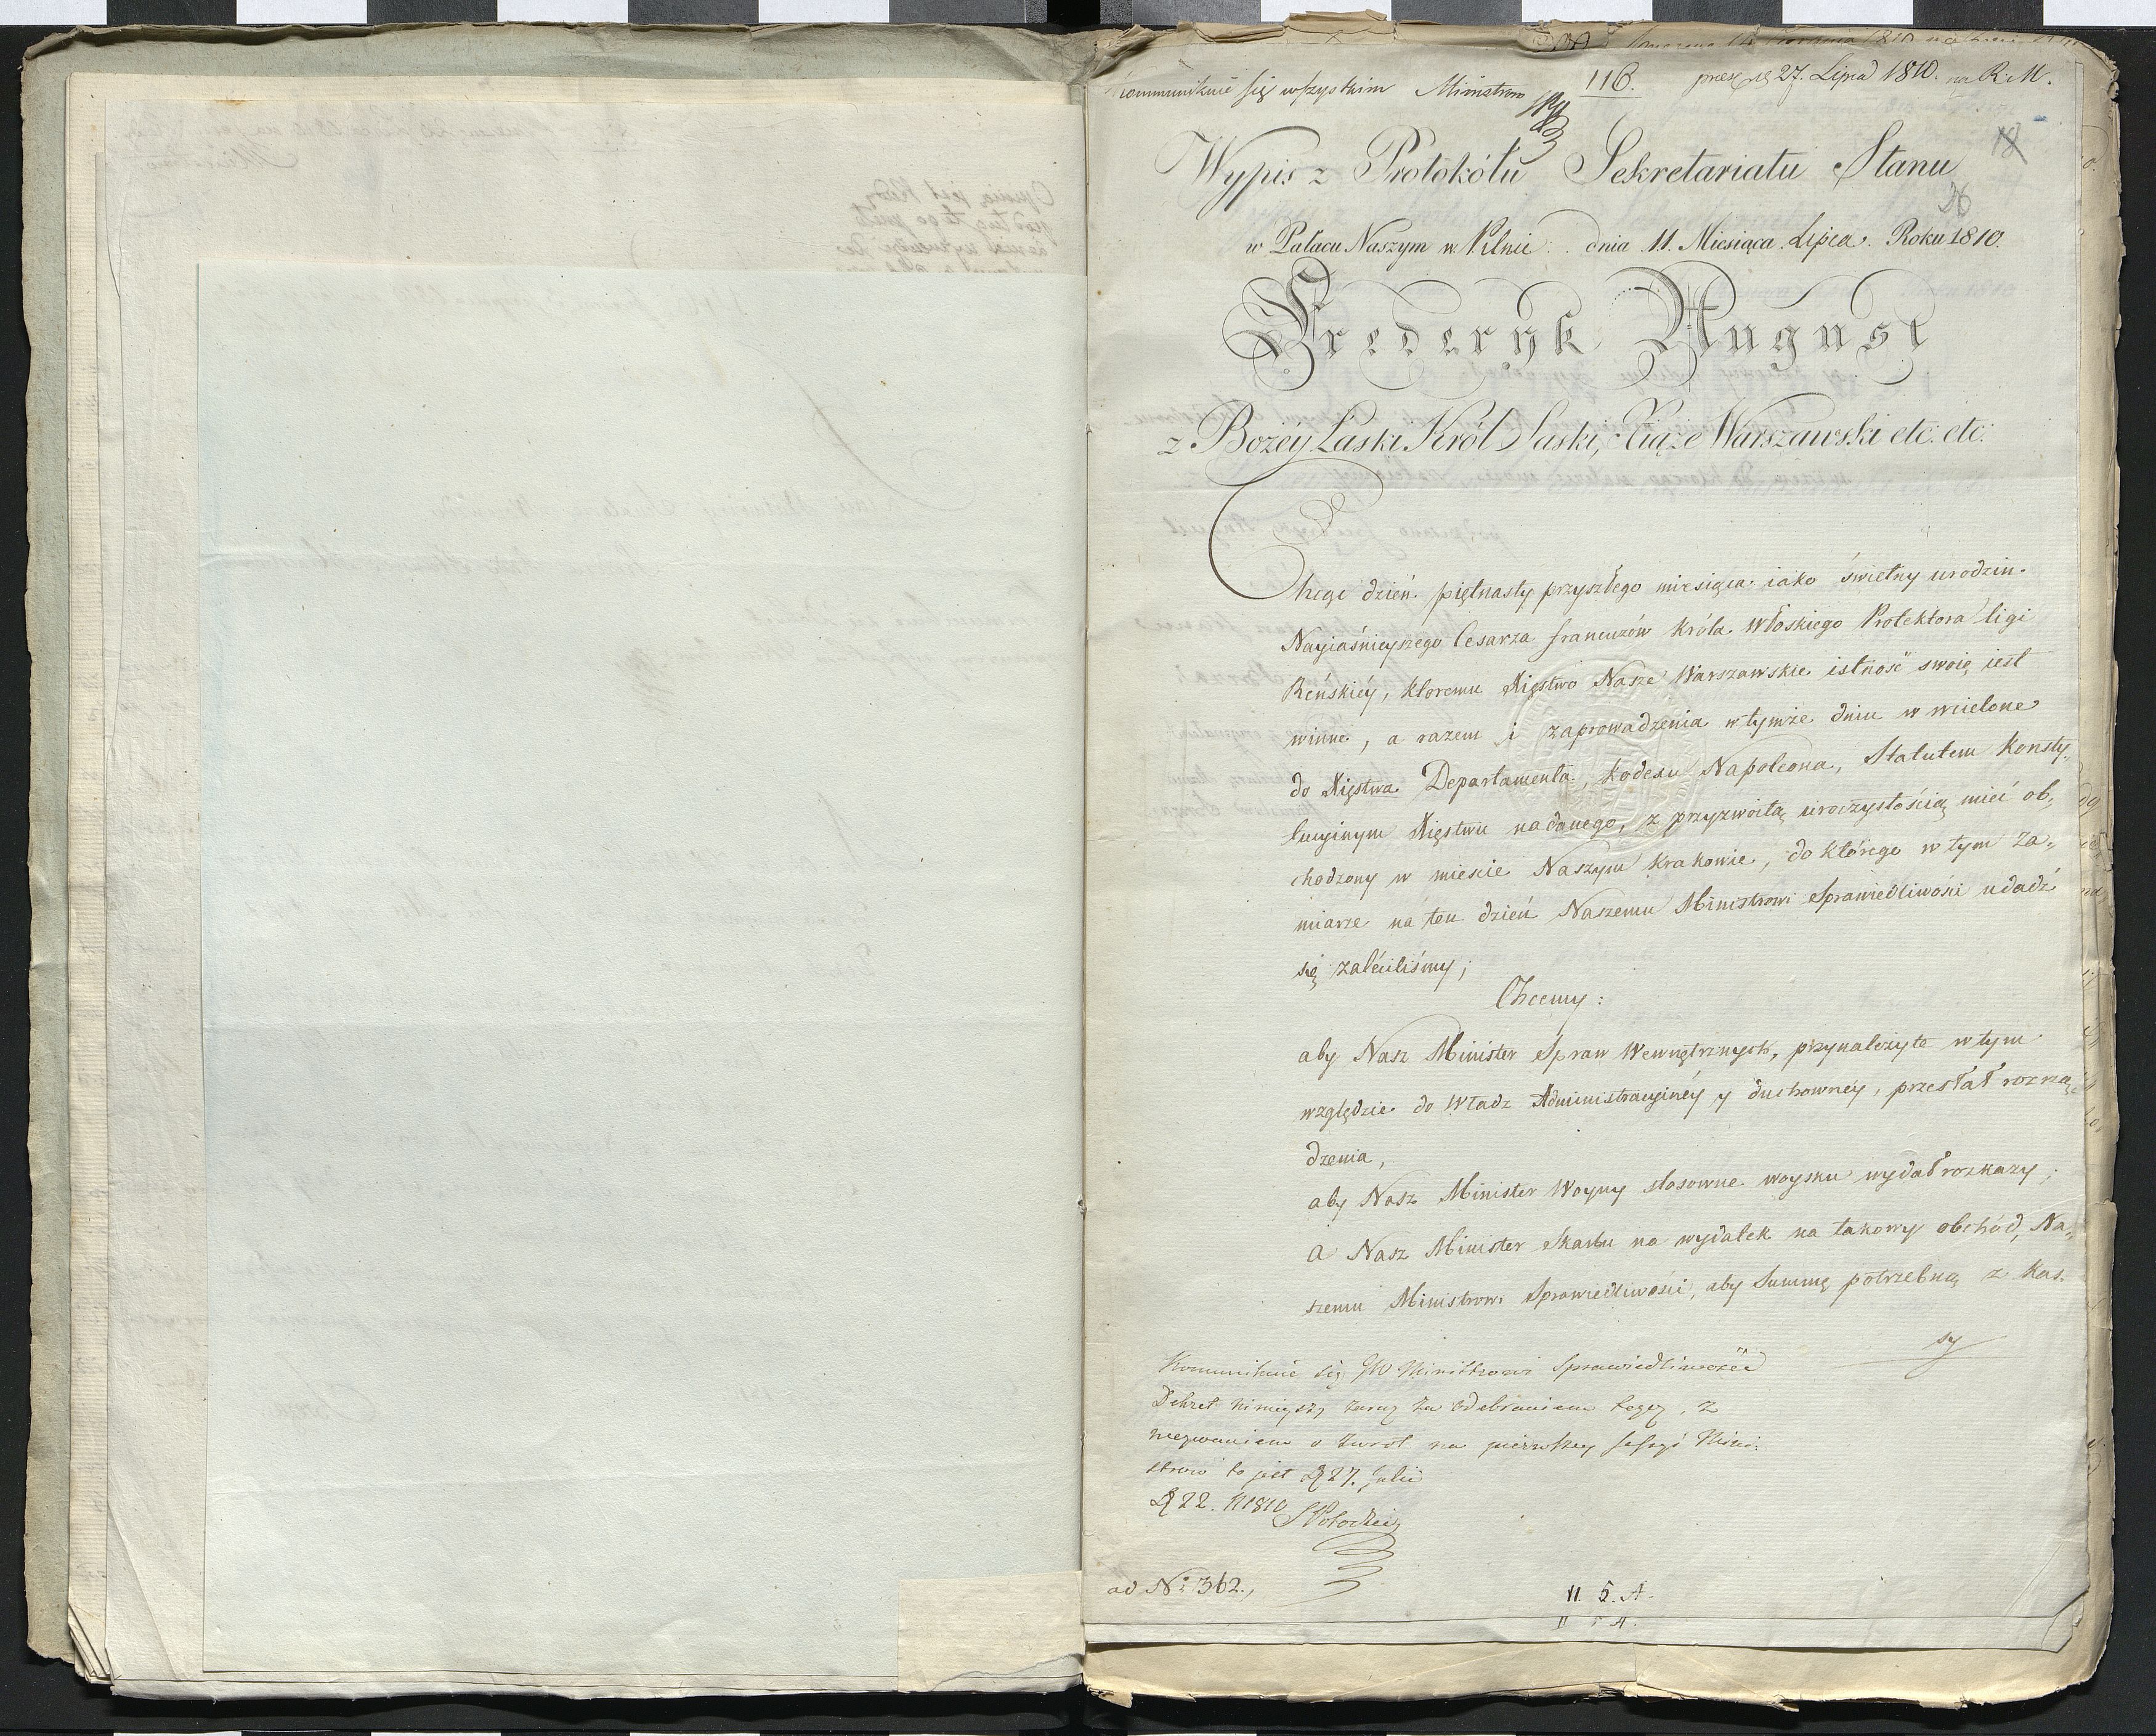 kommunikuie się wszystkim Ministrom
116.
27. Lipca 1810. na R. M.
18
Wypis z Protokółu Sekretariatu Stanu
w Pałacu Naszym w Pilnic dnia 11. Miesiąca Lipca. Roku 1810.
Frederyk August
z Bożey Łaski Król Saski, Xiąże Warszawski etc. etc.
Chcąc dzień piętnasty przyszłego miesiąca iako świetny urodzin
Nayiaśnieyszego Cesarza francuzów Króla Włoskiego Protektora ligi
Reńskiéy, ktoremu Xięstwo Nasze Warszawskie istność swoię iest
winne, a razem i zaprowadzenia w tymże dniu w wcielone
do Xięstwa Departamenta, Kodexu Napoleona, Statutem Konsty-
tucyinym Xięstwu nadanego, z przyzwoitą uroczystością mieć ob-
chodzony w mieście Naszym Krakowie, do którego w tym za-
miarze na ten dzień Naszemu Ministrowi Sprawiedliwości udadź
się zaleciliśmy;
Chcemy:
aby Nasz Minister Spraw Wewnętrznych, przynależyte w tym
względzie do Władz Administracyinéy y duchowney, przesłał rozrzą-
dzenia,
aby Nasz Minister Woyny stosowne woysku wydał rozkazy;
a Nasz Minister Skarbu na wydatek na takowy obchód, Na-
szemu Ministrowi Sprawiedliwości, aby Summę potrzebną z Kas-
sy
Kommunikuie się JW Ministrowi Sprawiedliwości
Dekret ninieyszy zaraz za odebraniem tegoż, z
wezwaniem o zwrot na pierwszey sessyi Mini-
strów to jest d 27. Julii
d 22. 1810
SPotocki
ad No 362.,
II. 5. A.
II 5 A.